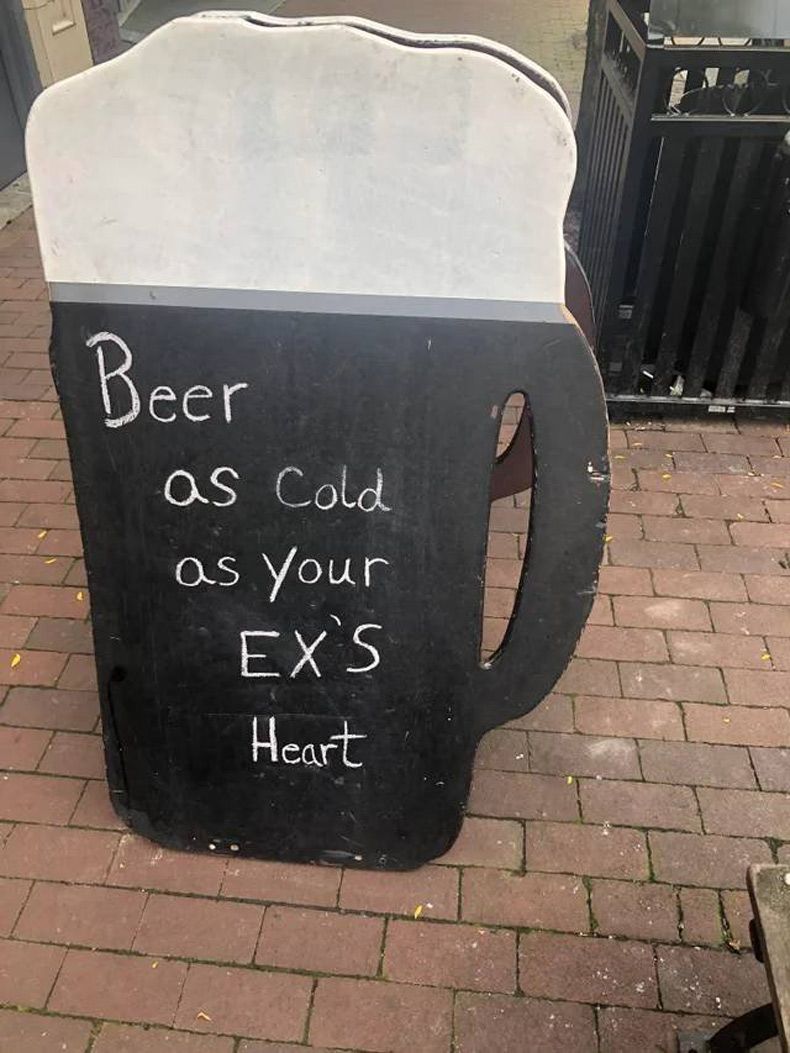 Beer
as Cold
as your
EX'S
Heart